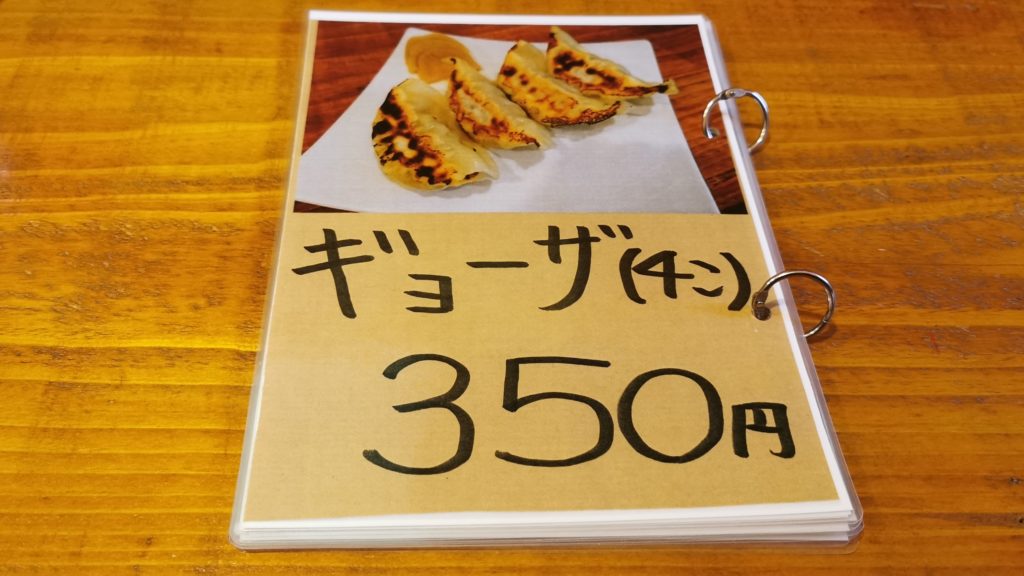 ギョーザ(4こ)
350円